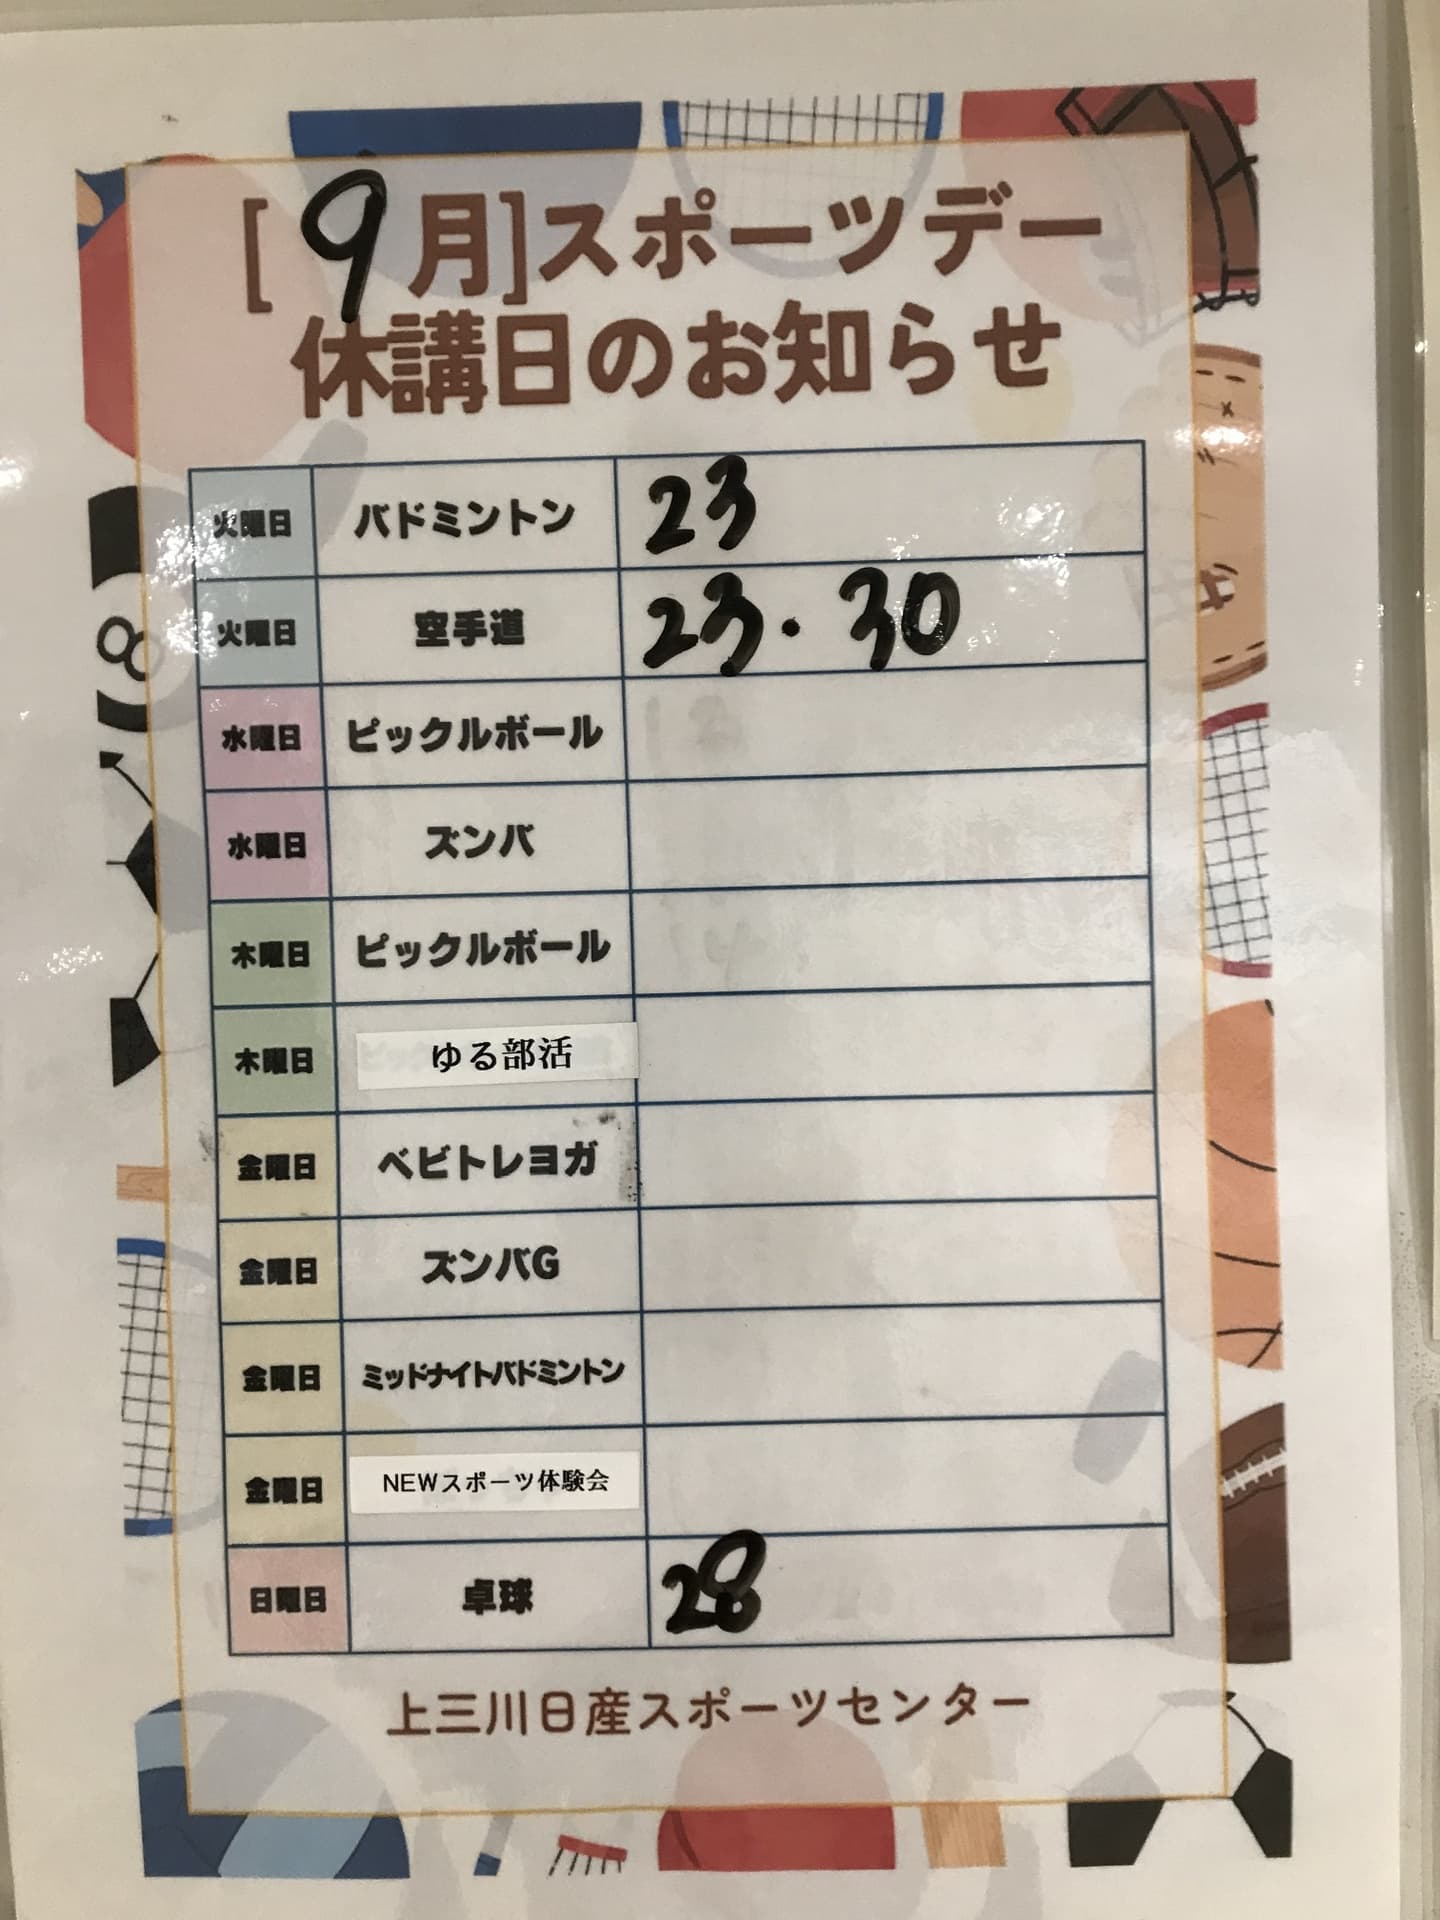 [9月]スポーツデー
休講日のお知らせ
火曜日 バドミントン 23
火曜日 空手道 23・30
水曜日 ピックルボール
水曜日 ズンバ
木曜日 ピックルボール
木曜日 ゆる部活
金曜日 ベビトレヨガ
金曜日 ズンバG
金曜日 ミッドナイトバドミントン
金曜日 NEWスポーツ体験会
日曜日 卓球 28
上三川日産スポーツセンター